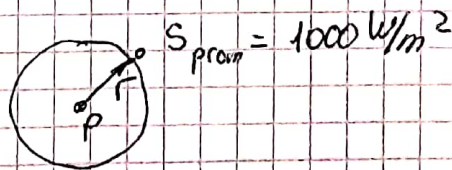 S prom = 1000 W/m²
r
P